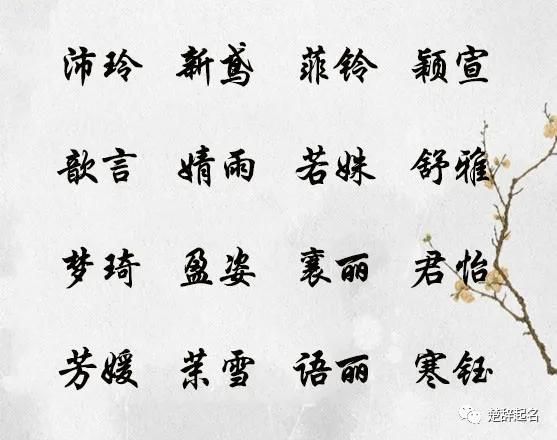 沛玲 新鸢 菲铃 颖宣
歆言 婧雨 若姝 舒雅
梦琦 盈姿 襄丽 君怡
芳媛 茉雪 语丽 寒钰
楚辞起名